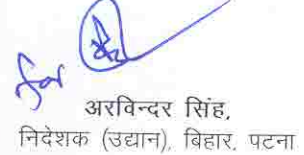 अरविन्दर सिंह,
निदेशक (उद्यान), बिहार, पटना